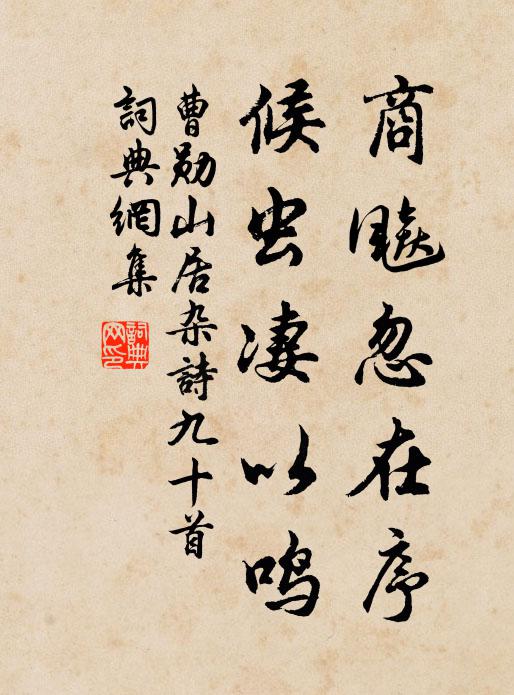 商飈忽在序
候虫凄以鸣
曹勋山居杂詩九十首
詞典網集
詞典网印